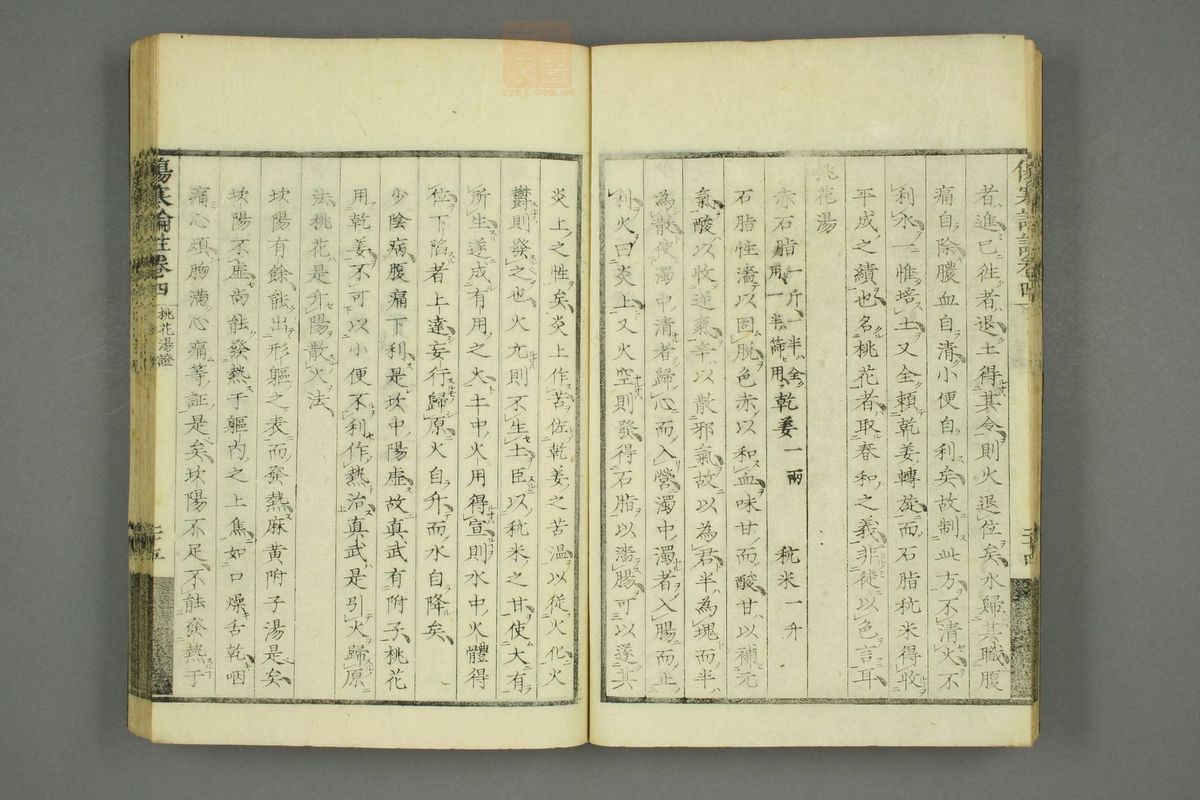 者進已往者退土得其令則火退位矣水歸其職腹
痛自除膿血自清小便自利矣故制此方不清火不
利水一惟培土又全賴乾姜轉旋而石脂秔米得收
平成之績也名桃花者取春和之義非徒以色言耳
桃花湯
赤石脂一斤一半全用一半篩用乾姜一兩 秔米一升
石脂性濇以固脫色赤以和血味甘而酸甘以補元
氣酸以收逆氣辛以散邪氣故以為君半為塊而半
為散使濁中清者歸心而入營濁中濁者入腸而止
利火曰炎上又火空則發得石脂以濇腸可以遂其
炎上之性矣炎上作苦佐乾姜之苦溫以從火化火
鬱則發之也火亢則不生土臣以秔米之甘使火有
所生遂成有用之火土中火用得宣則水中火體得
位下陷者上達妄行歸原火自升而水自降矣
少陰病腹痛下利是坎中陽虛故真武有附子桃花
用乾姜不可以小便不利作熱治真武是引火歸原
法桃花是升陽散火法
坎陽有餘能出形軀之表而發熱麻黃附子湯是矣
坎陽不虛尚能發熱于軀內之上焦如口燥舌乾咽
痛心煩胸滿心痛等証是矣坎陽不足不能發熱于
傷寒論註卷四 桃花湯證
二十四
二十五